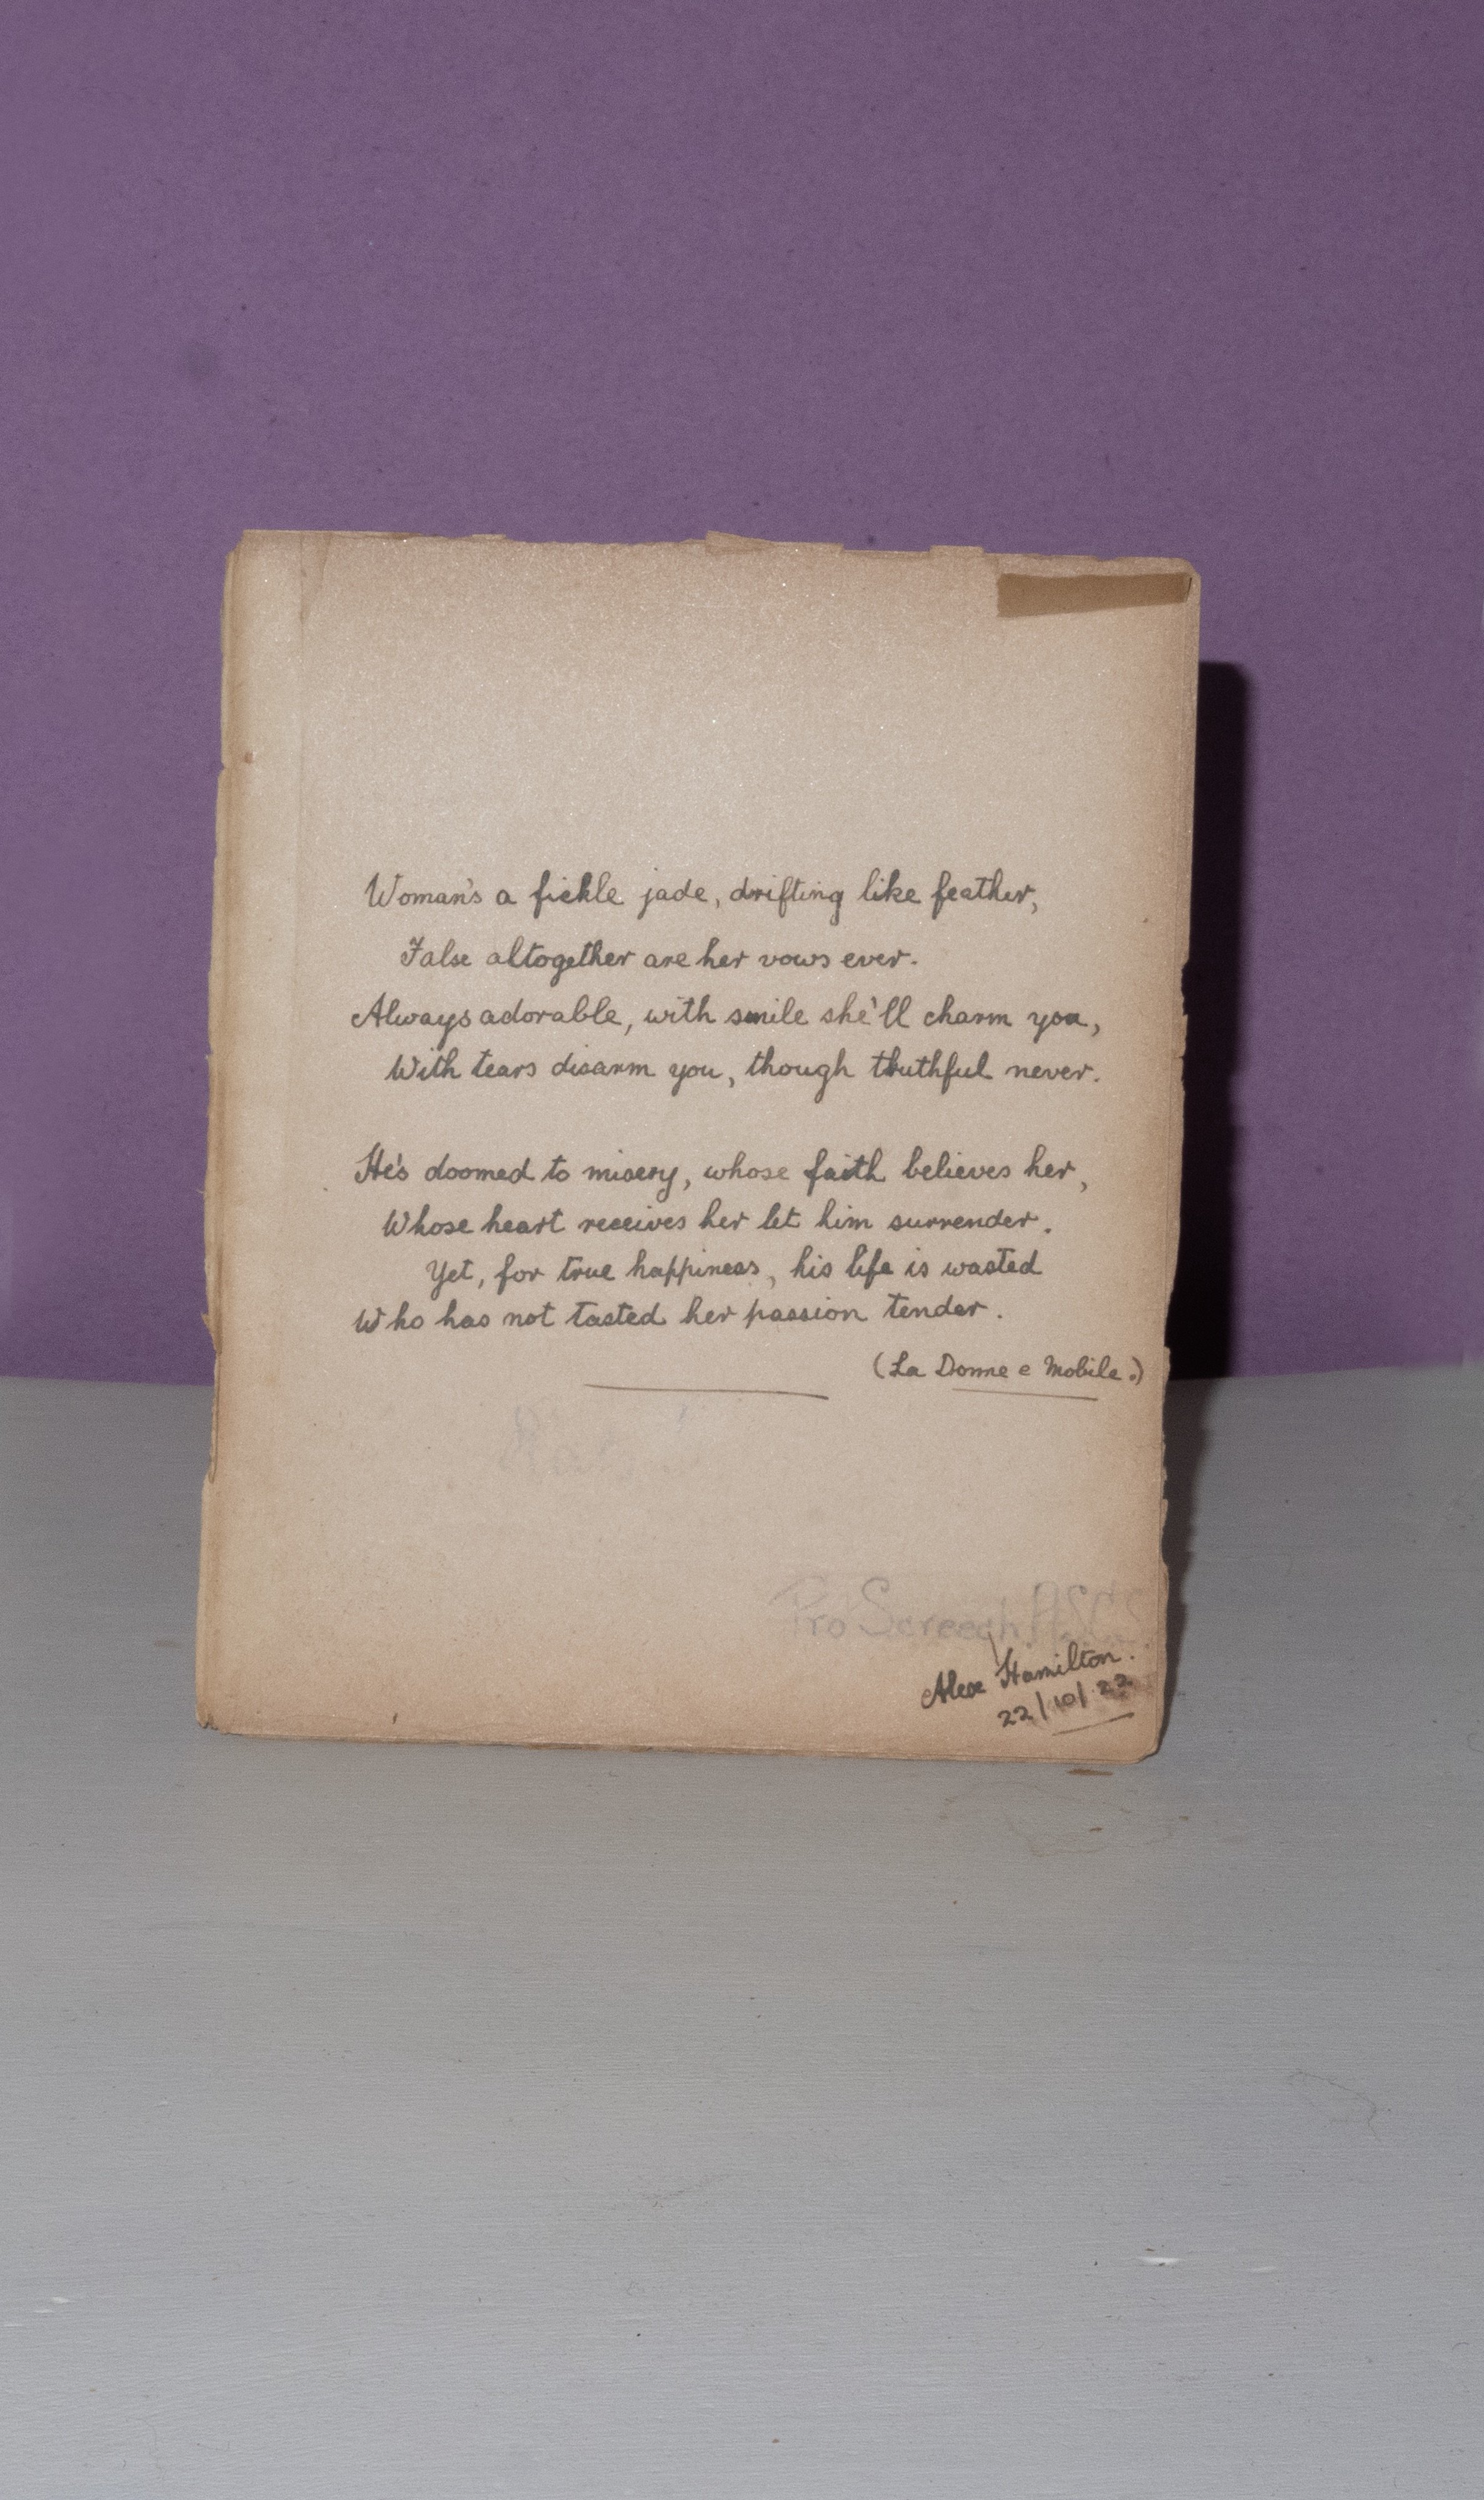 Woman's a fickle jade, drifting like feather,
False altogether are her vows ever.
Always adorable, with smile she'll charm you,
With tears disarm you, though truthful never.
He's doomed to misery, whose faith believes her,
Whose heart receives her let him surrender.
Yet, for true happiness, his life is wasted
Who has not tasted her passion tender.
(La Donne e Mobile.)
Pro Screech
Alex Hamilton.
22/10/22